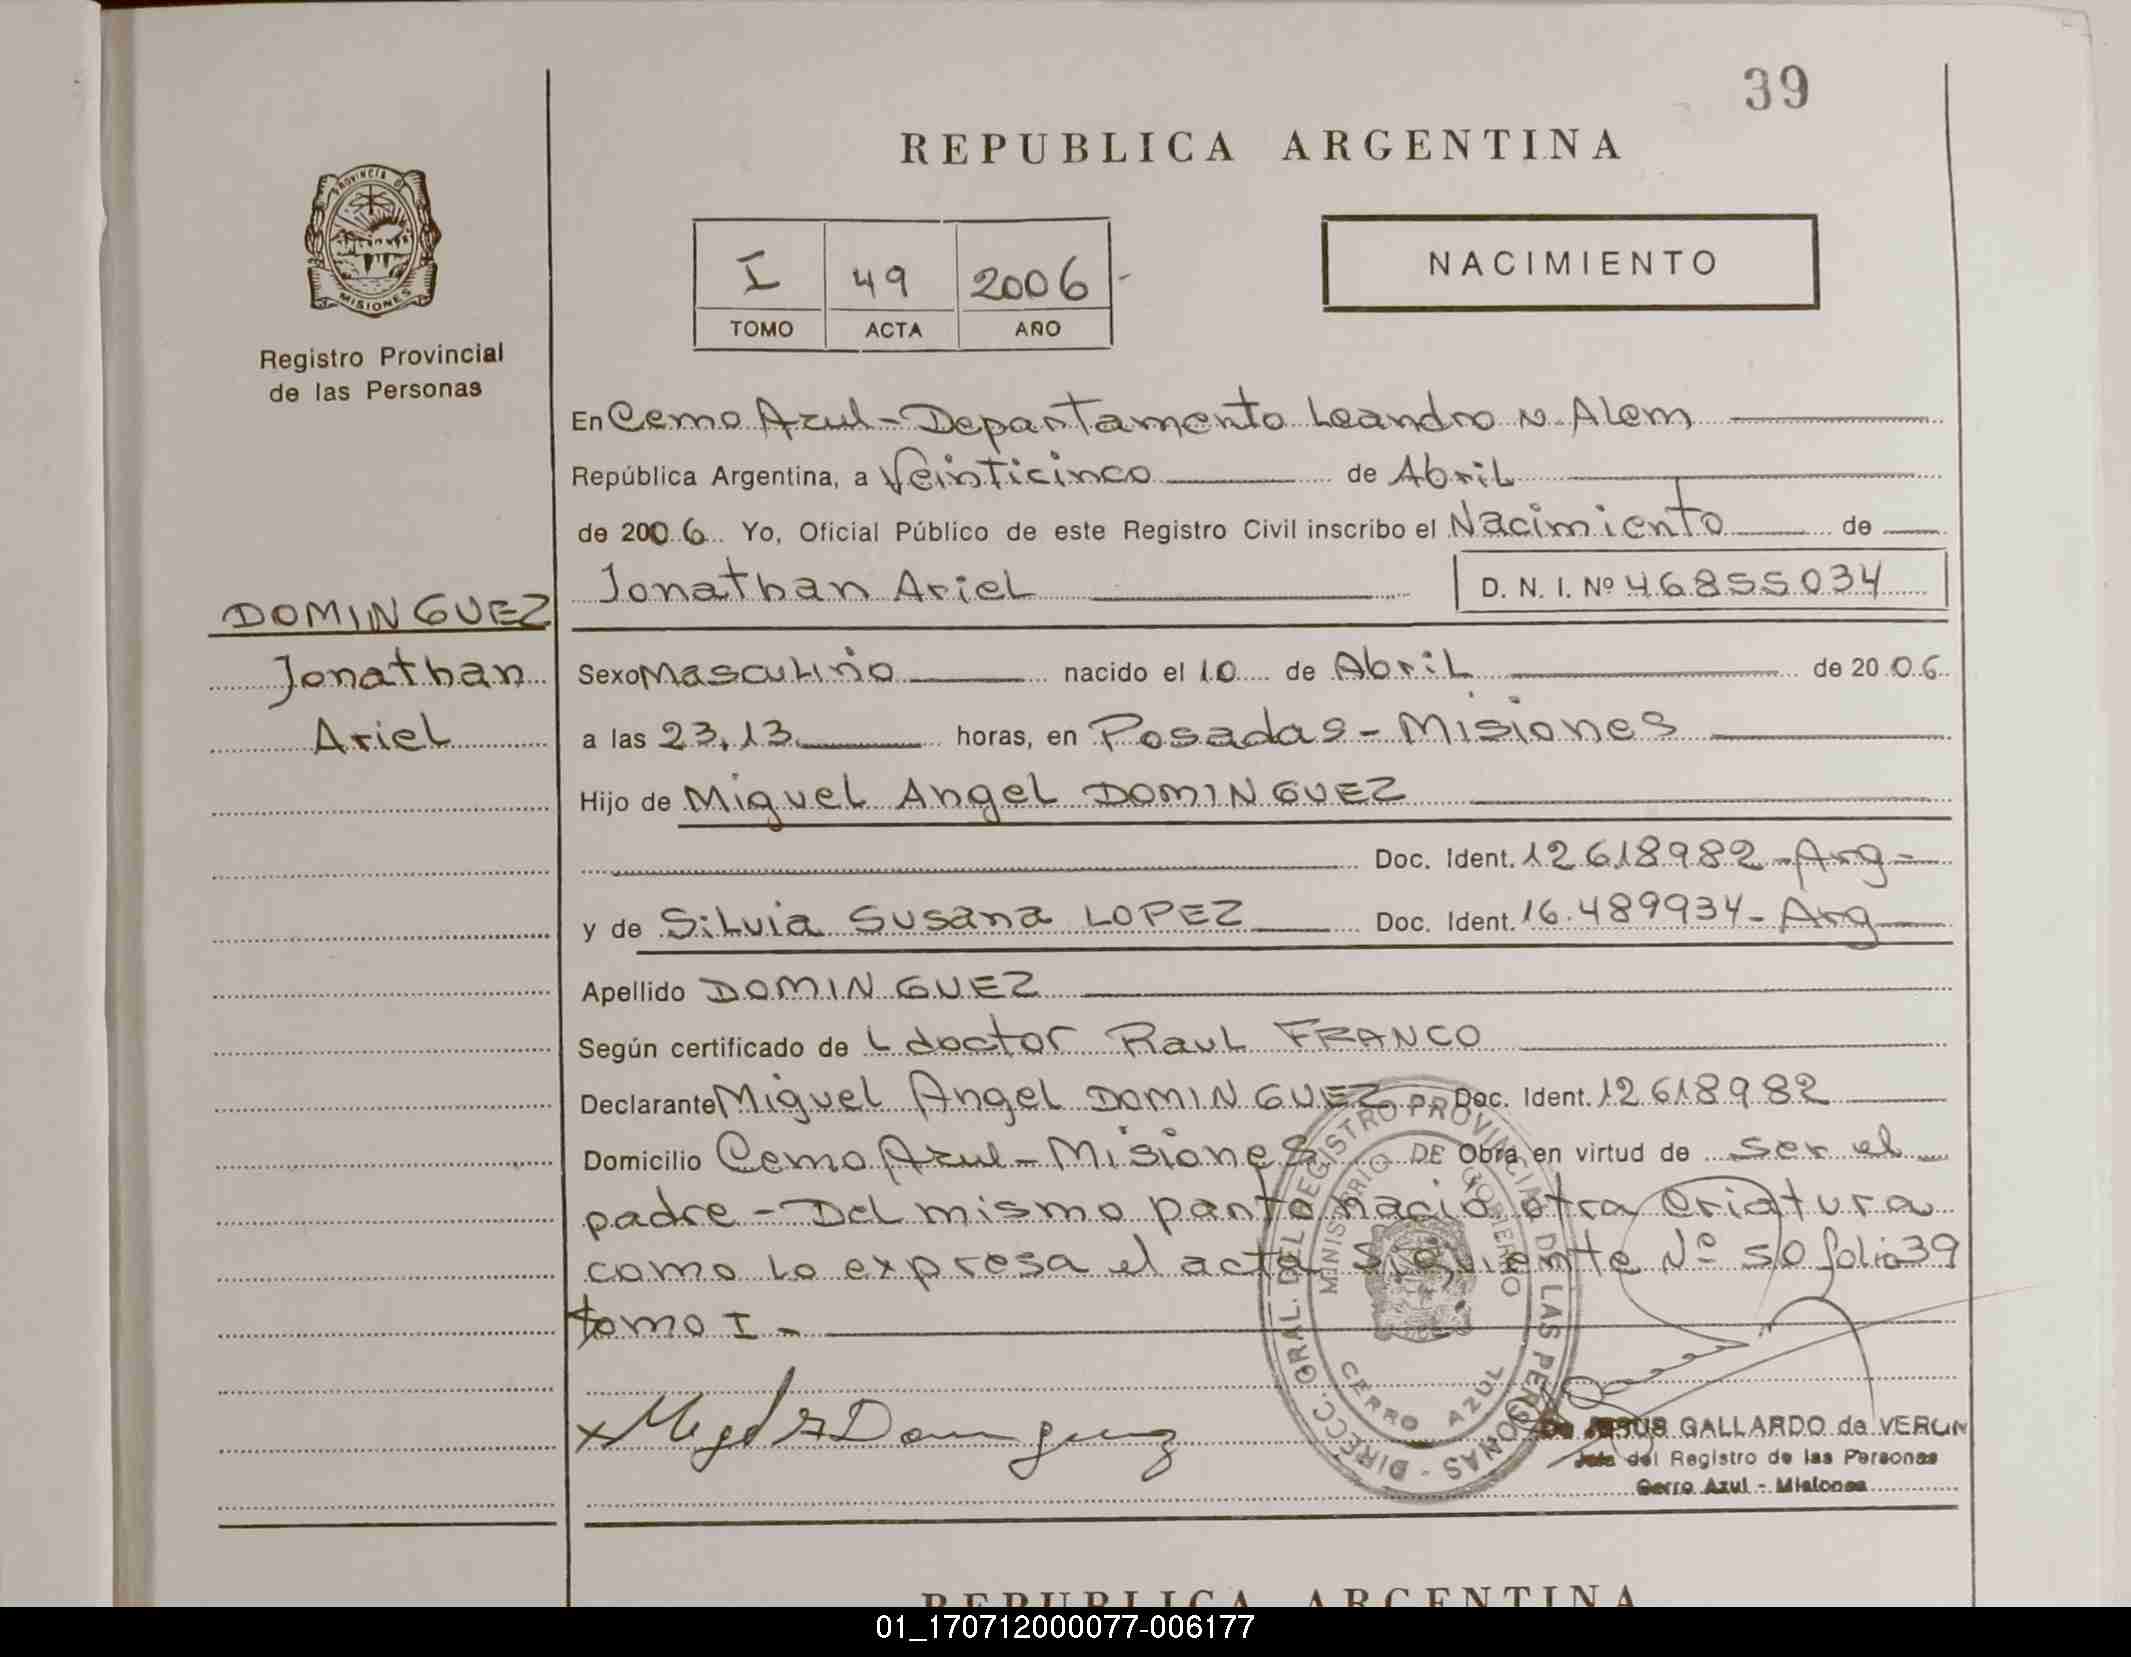 39
REPUBLICA ARGENTINA
PROVINCIA DE
MISIONES
Registro Provincial
de las Personas
I 49 2006 -
TOMO ACTA AÑO
NACIMIENTO
En Cerro Azul - Departamento Leandro N. Alem
República Argentina, a Veinticinco de Abril
de 2006 Yo, Oficial Público de este Registro Civil inscribo el Nacimiento de
Jonathan Ariel D. N. I. Nº 46855034
DOMINGUEZ
Jonathan
Ariel
Sexo Masculino nacido el 10 de Abril de 2006
a las 23,13 horas, en Posadas - Misiones
Hijo de Miguel Angel DOMINGUEZ
Doc. Ident. 12618982 - Arg -
y de Silvia Susana LOPEZ Doc. Ident. 16.489934 - Arg
Apellido DOMINGUEZ
Según certificado de L doctor Raul FRANCO
Declarante Miguel Angel DOMINGUEZ Doc. Ident. 12618982
Domicilio Cerro Azul - Misiones DE Obra en virtud de ser el
padre - Del mismo parto nació otra criatura
como lo expresa el acta siguiente Nº 50 folio 39
tomo I -
DIRECC. GRAL. DEL REGISTRO PROVINCIAL DE LAS PERSONAS -
MINISTERIO DE GOBIERNO
CERRO AZUL
JESUS GALLARDO de VERON
Jefe del Registro de las Personas
Cerro Azul - Misiones
REPUBLICA ARGENTINA
01_170712000077-006177